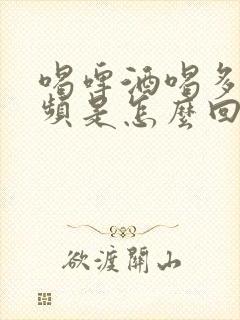 喝啤酒喝多
頻是怎麼回
欲渡關山